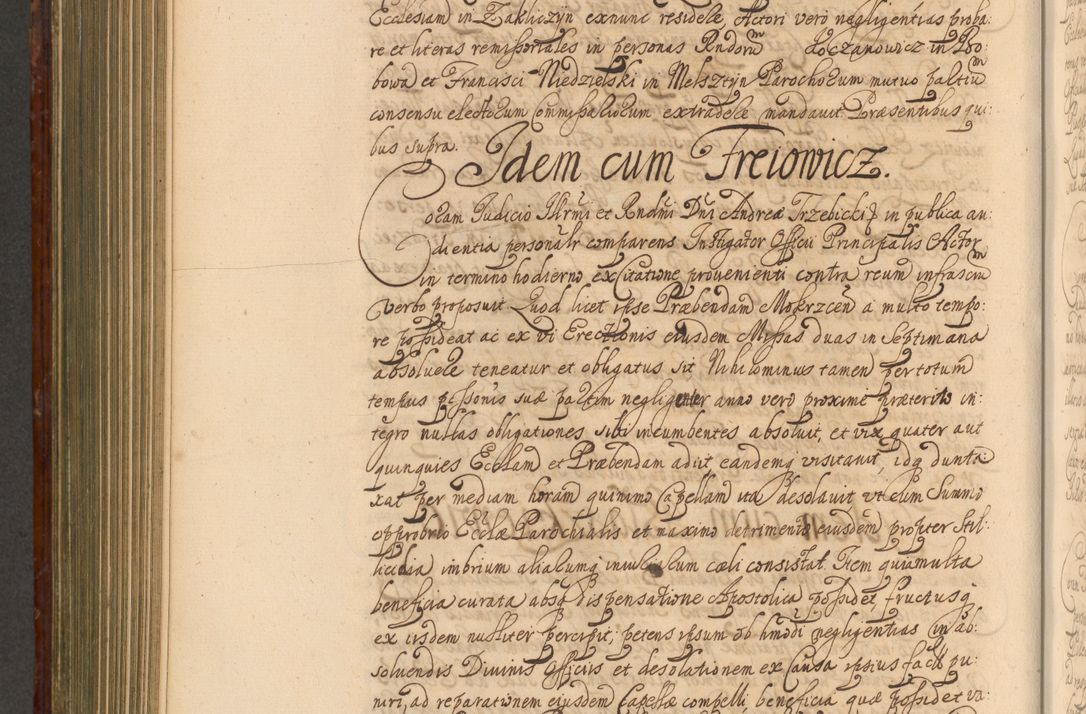 Ecclesiam in Zakliczyn exnunc residere, Actori vero negligentias proba:
re et literas remissoriales in personas Rndorum Łoczanowicz in Bo:
bowa et Francisci Niedzielski in Melsztyn Parochorum mutuo partium
consensu electorum Commissariorum extradere mandavit Præsentibus qui:
bus supra.
Idem cum Freiowicz.
Coram Judicio Illrmi et Rndmi Dni Andreæ Trzebicki in publica au:
dientia personalr comparens Instigator Officii Principalis Actor
in termino hodierno ex citatione provenienti contra reum infrascm
Verbo proposuit Quod licet ipse Præbendam Mokrzcen a multo tempo:
re possideat ac ex vi Erectionis eiusdem Missas duas in Septimana
absolvere teneatur et obligatus sit Nihilominus tamen per totum
tempus possonis suæ partim negligenter anno vero proxime præterito in:
tegro nullas obligationes sibi incumbentes absolvit, et vix quater aut
quinquies Ecclam et Præbendam adiit eandemq visitavit, idq dunta:
xat per mediam horam quinimo Capellam ita desolavit ut cum Summo
opprobrio Ecclæ Parochialis et maximo detrimento eiusdem propter Stil:
licidia imbrium aliarumq iniuriarum cœli consistat. Item quia multa
beneficia curata absq dispensatione Apostolica possidet, fructusq
ex iisdem nulliter percipit; petens ipsum ob hmodi negligentias in ab:
solvendis Divinis Officiis et desolationem ex Causa ipsius factam pu:
niri, ad reparationem eiusdem Capellæ compelli, beneficia quæ possidet va: